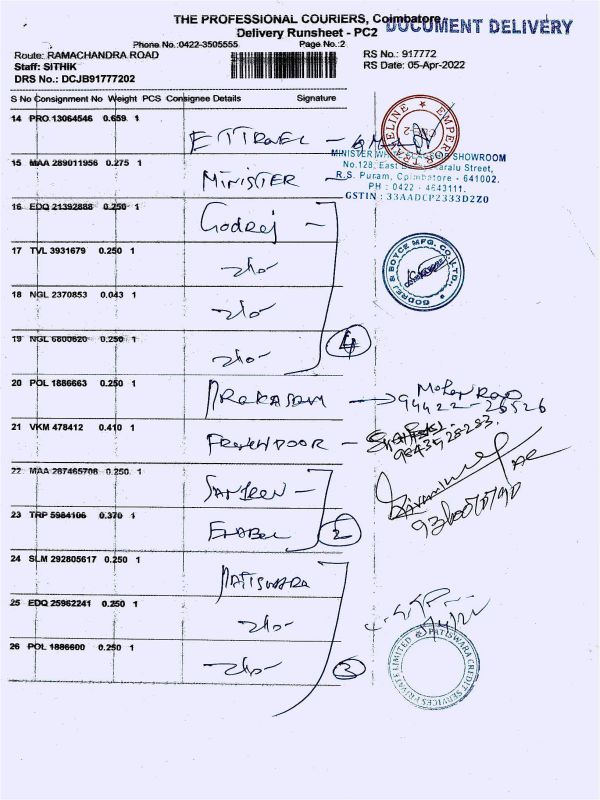 THE PROFESSIONAL COURIERS, Coimbatore
DOCUMENT DELIVERY
Delivery Runsheet - PC2
Phone No.:0422-3505555
Page No.:2
Route: RAMACHANDRA ROAD
Staff: SITHIK
DRS No.: DCJB91777202
RS No.: 917772
RS Date: 05-Apr-2022
S No Consignment No Weight PCS Consignee Details Signature
14 PRO 13064546 0.659 1
ET TRAVEL -
EMPEROR TRAVELINE
15 MAA 289011956 0.275 1
MINISTER -
SHOWROOM
No.128, East
Street,
R.S. Puram, Coimbatore - 641002.
PH : 0422 - 4643111.
GSTIN : 33AADCP2333D2Z0
16 EDQ 21392888 0.250 1
Godrej -
17 TVL 3931679 0.250 1
GODREJ & BOYCE MFG. CO. LTD.
18 NGL 2370853 0.043 1
19 NGL 6800620 0.250 1
4
20 POL 1886663 0.250 1
PRAKASAM
94422-26526
21 VKM 478412 0.410 1
22 MAA 287465706 0.250 1
SANJEEN -
23 TRP 5984106 0.370 1
2
24 SLM 292805617 0.250 1
PATISWARA
25 EDQ 25962241 0.250 1
26 POL 1886600 0.250 1
3
PATISWARA CREDIT SERVICES PRIVATE LIMITED